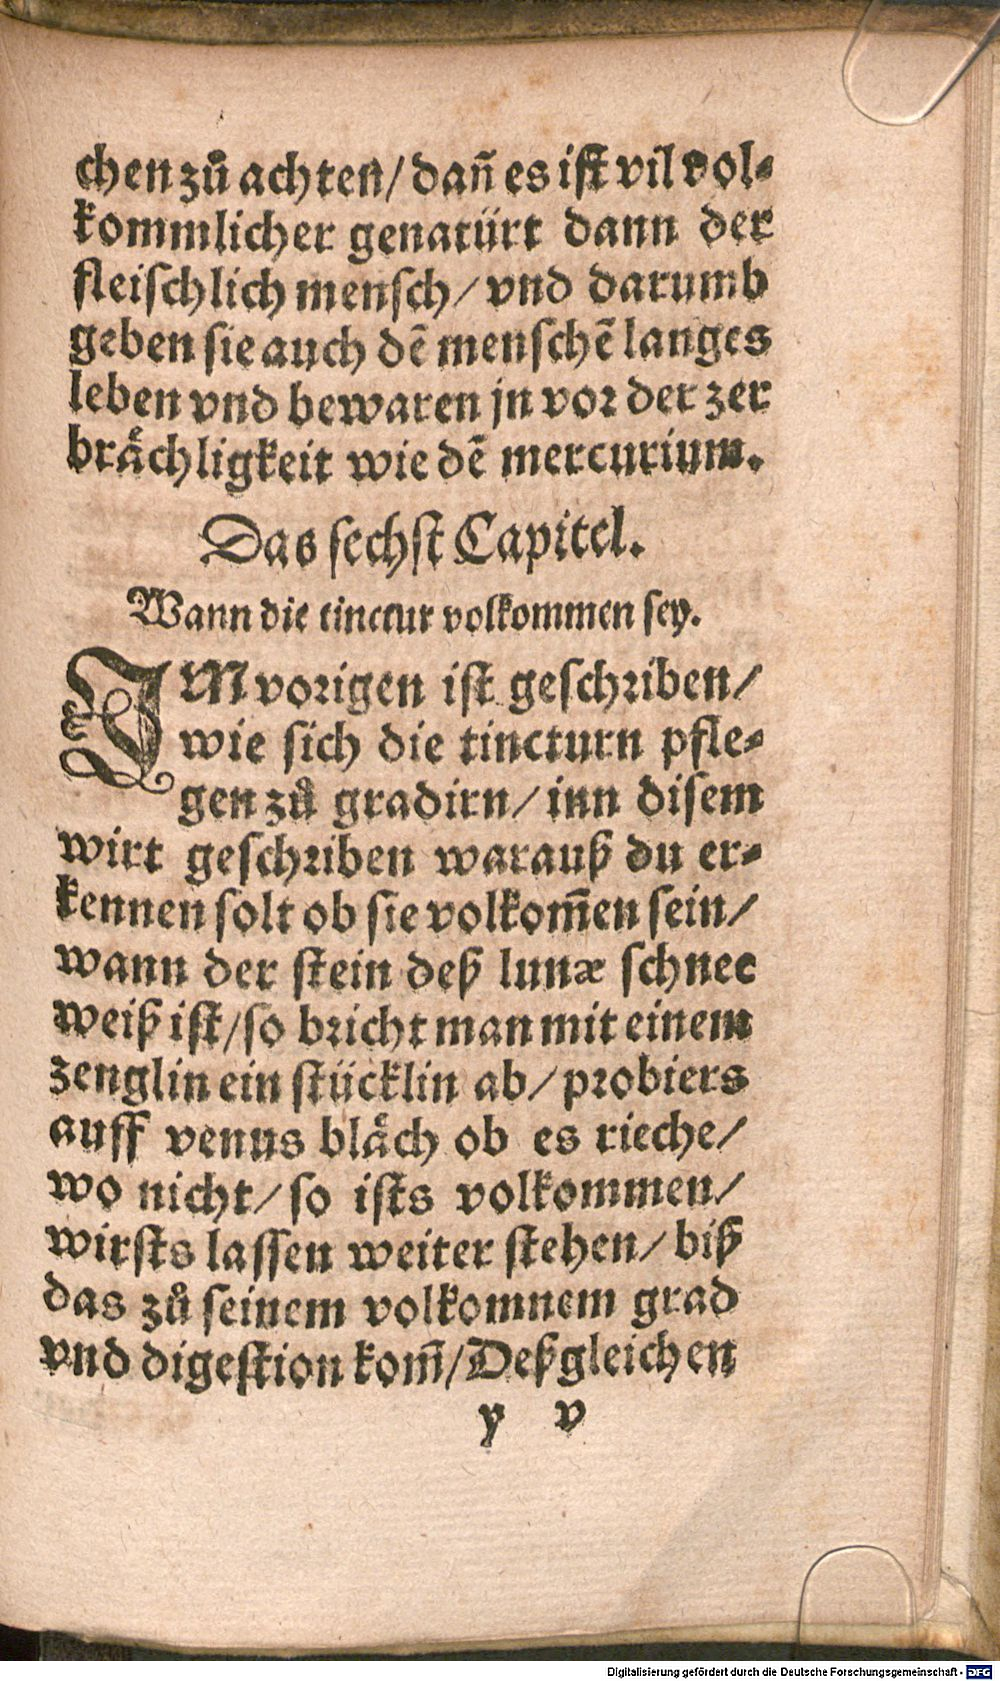 chen zů achten/ dañ es ist vil vol⸗
kommlicher genatürt dann der
fleischlich mensch/ vnd darumb
geben sie auch dē menschē langes
leben vnd bewaren jn vor der zer
bråchligkeit wie dē mercurium.
Das sechst Capitel.
Wann die tinctur volkommen sey.
IM vorigen ist geschriben/
wie sich die tincturn pfle⸗
gen zů gradirn/ inn disem
wirt geschriben warauß du er⸗
kennen solt ob sie volkom̃en sein/
wann der stein deß lunæ schnee
weiß ist/ so bricht man mit einem
zenglin ein stücklin ab/ probiers
auff venus blåch ob es rieche/
wo nicht/ so ists volkommen/
wirsts lassen weiter stehen/ biß
das zů seinem volkomnem grad
vnd digestion kom̃/ Deßgleichen
y v
Digitalisierung gefördert durch die Deutsche Forschungsgemeinschaft - DFG